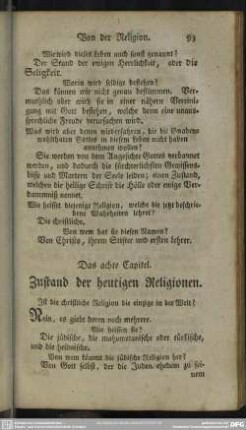 Von der Religion. 93
Wie wird dieses Leben auch sonst genannt?
Der Stand der ewigen Herrlichkeit, oder die
Seligkeit.
Worin wird selbige bestehen?
Das können wir nicht genau bestimmen. Ver-
muthlich aber wird sie in einer nähern Vereini-
gung mit Gott bestehen, welche denn eine unaus-
sprechliche Freude verursachen wird.
Was wird aber denen wiederfahren, die die Gnaden-
wohlthaten Gottes in diesem Leben nicht haben
annehmen wollen?
Sie werden von dem Angesichte Gottes verbannet
werden, und dadurch die fürchterlichsten Gewissens-
bisse und Martern der Seele leiden; einen Zustand,
welchen die heilige Schrift die Hölle oder ewige Ver-
dammniß nennet.
Wie heisset diejenige Religion, welche die jetzt beschrie-
bene Wahrheiten lehret?
Die christliche.
Von wem hat sie diesen Namen?
Von Christo, ihrem Stifter und ersten Lehrer.
Das achte Capitel.
Zustand der heutigen Religionen.
Ist die christliche Religion die einzige in der Welt?
Nein, es giebt deren noch mehrere.
Wie heissen sie?
Die jüdische, die mahometanische oder türkische,
und die heidnische.
Von wem kömmt die jüdische Religion her?
Von Gott selbst, der die Juden ehedem zu sei-
nem